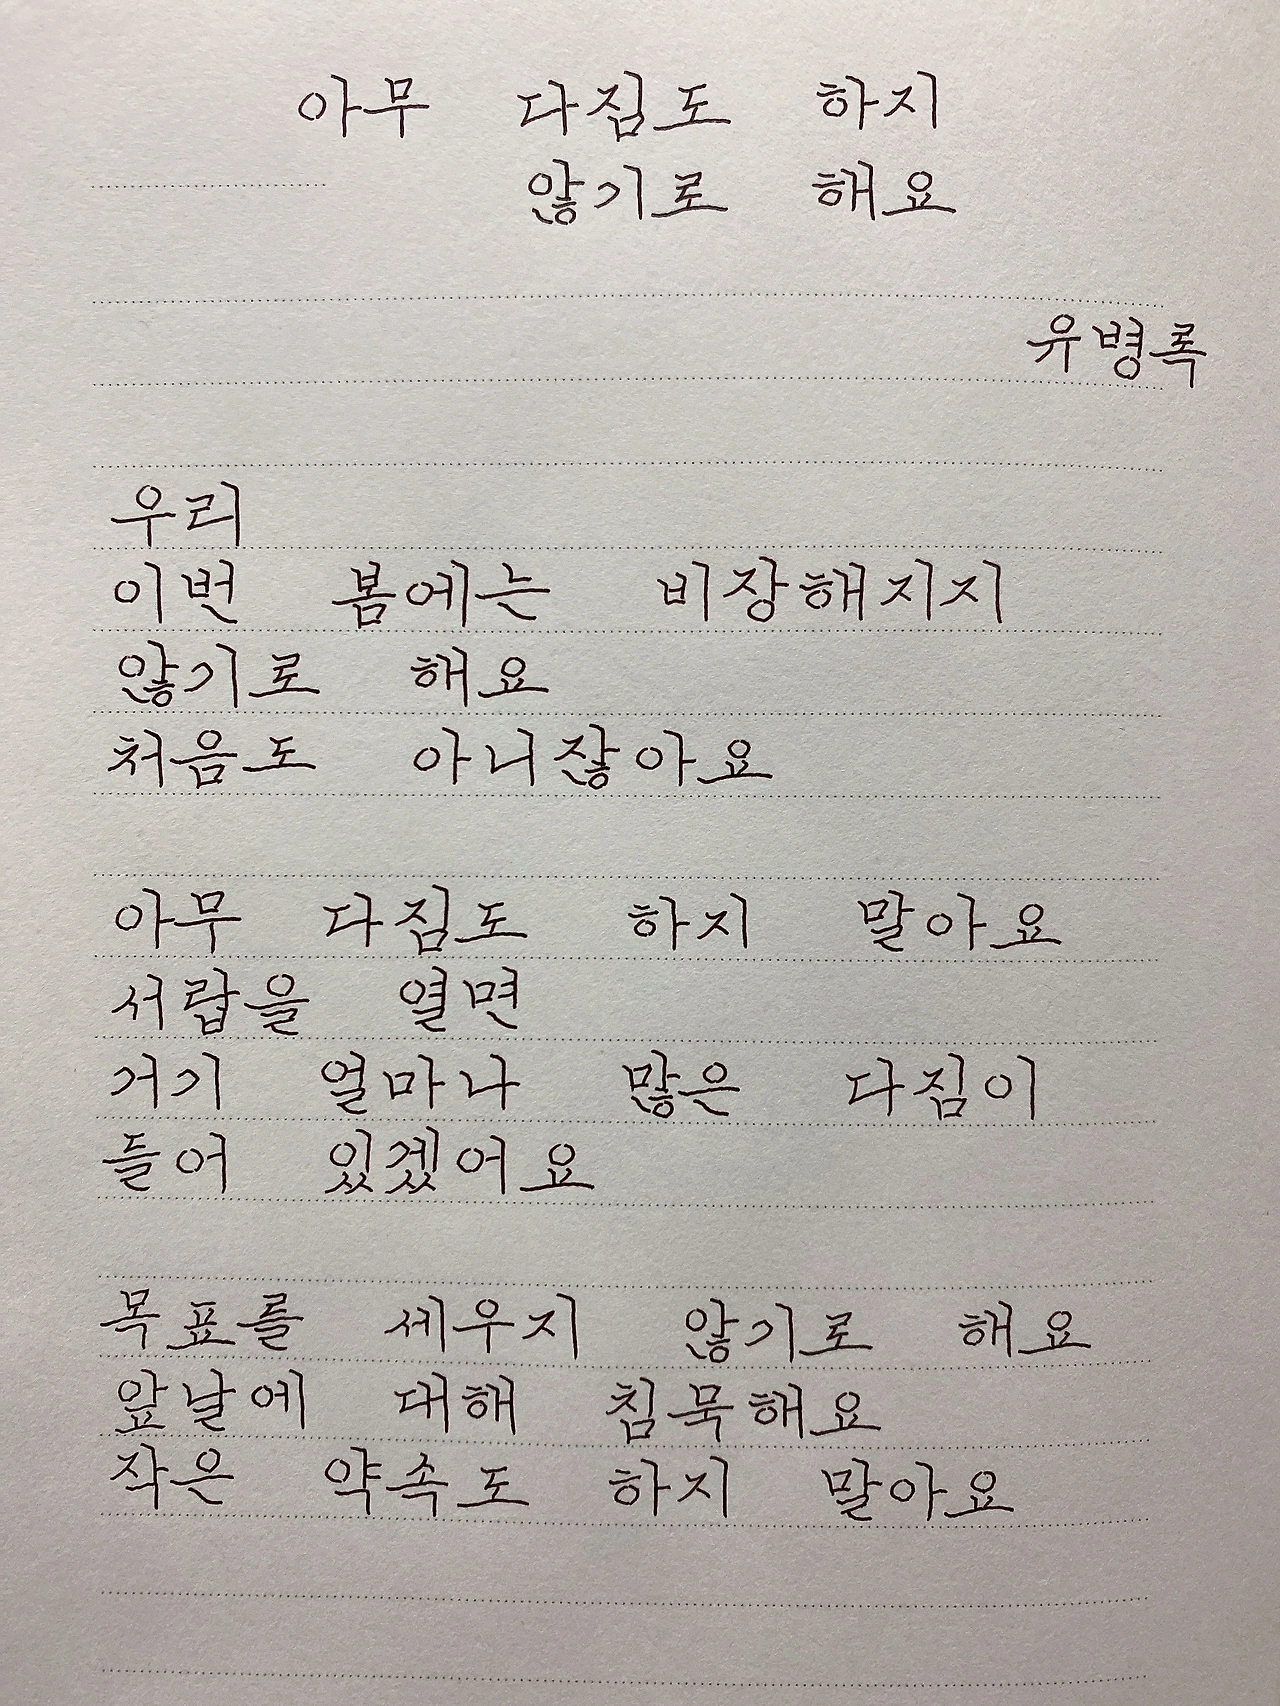 아무 다짐도 하지
않기로 해요
유병록
우리
이번 봄에는 비장해지지
않기로 해요
처음도 아니잖아요
아무 다짐도 하지 말아요
서랍을 열면
거기 얼마나 많은 다짐이
들어 있겠어요
목표를 세우지 않기로 해요
앞날에 대해 침묵해요
작은 약속도 하지 말아요